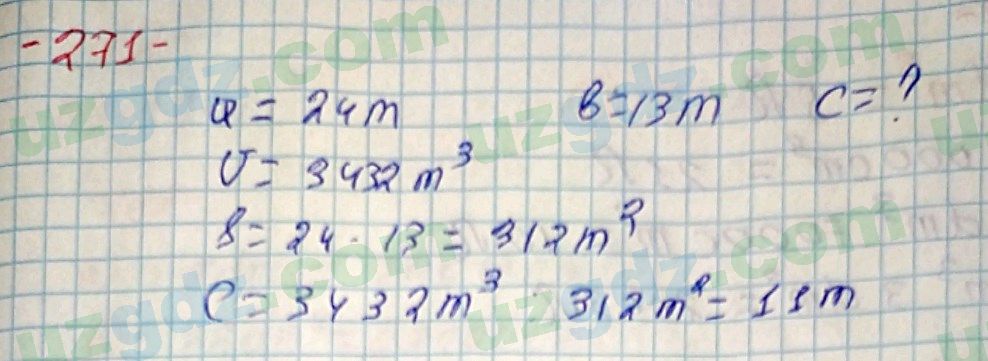 -271-
a = 24m b=13m c=?
V= 3432m³
S= 24 · 13 = 312m²
C= 3432m³ : 312m² = 11m
uzgdz.com